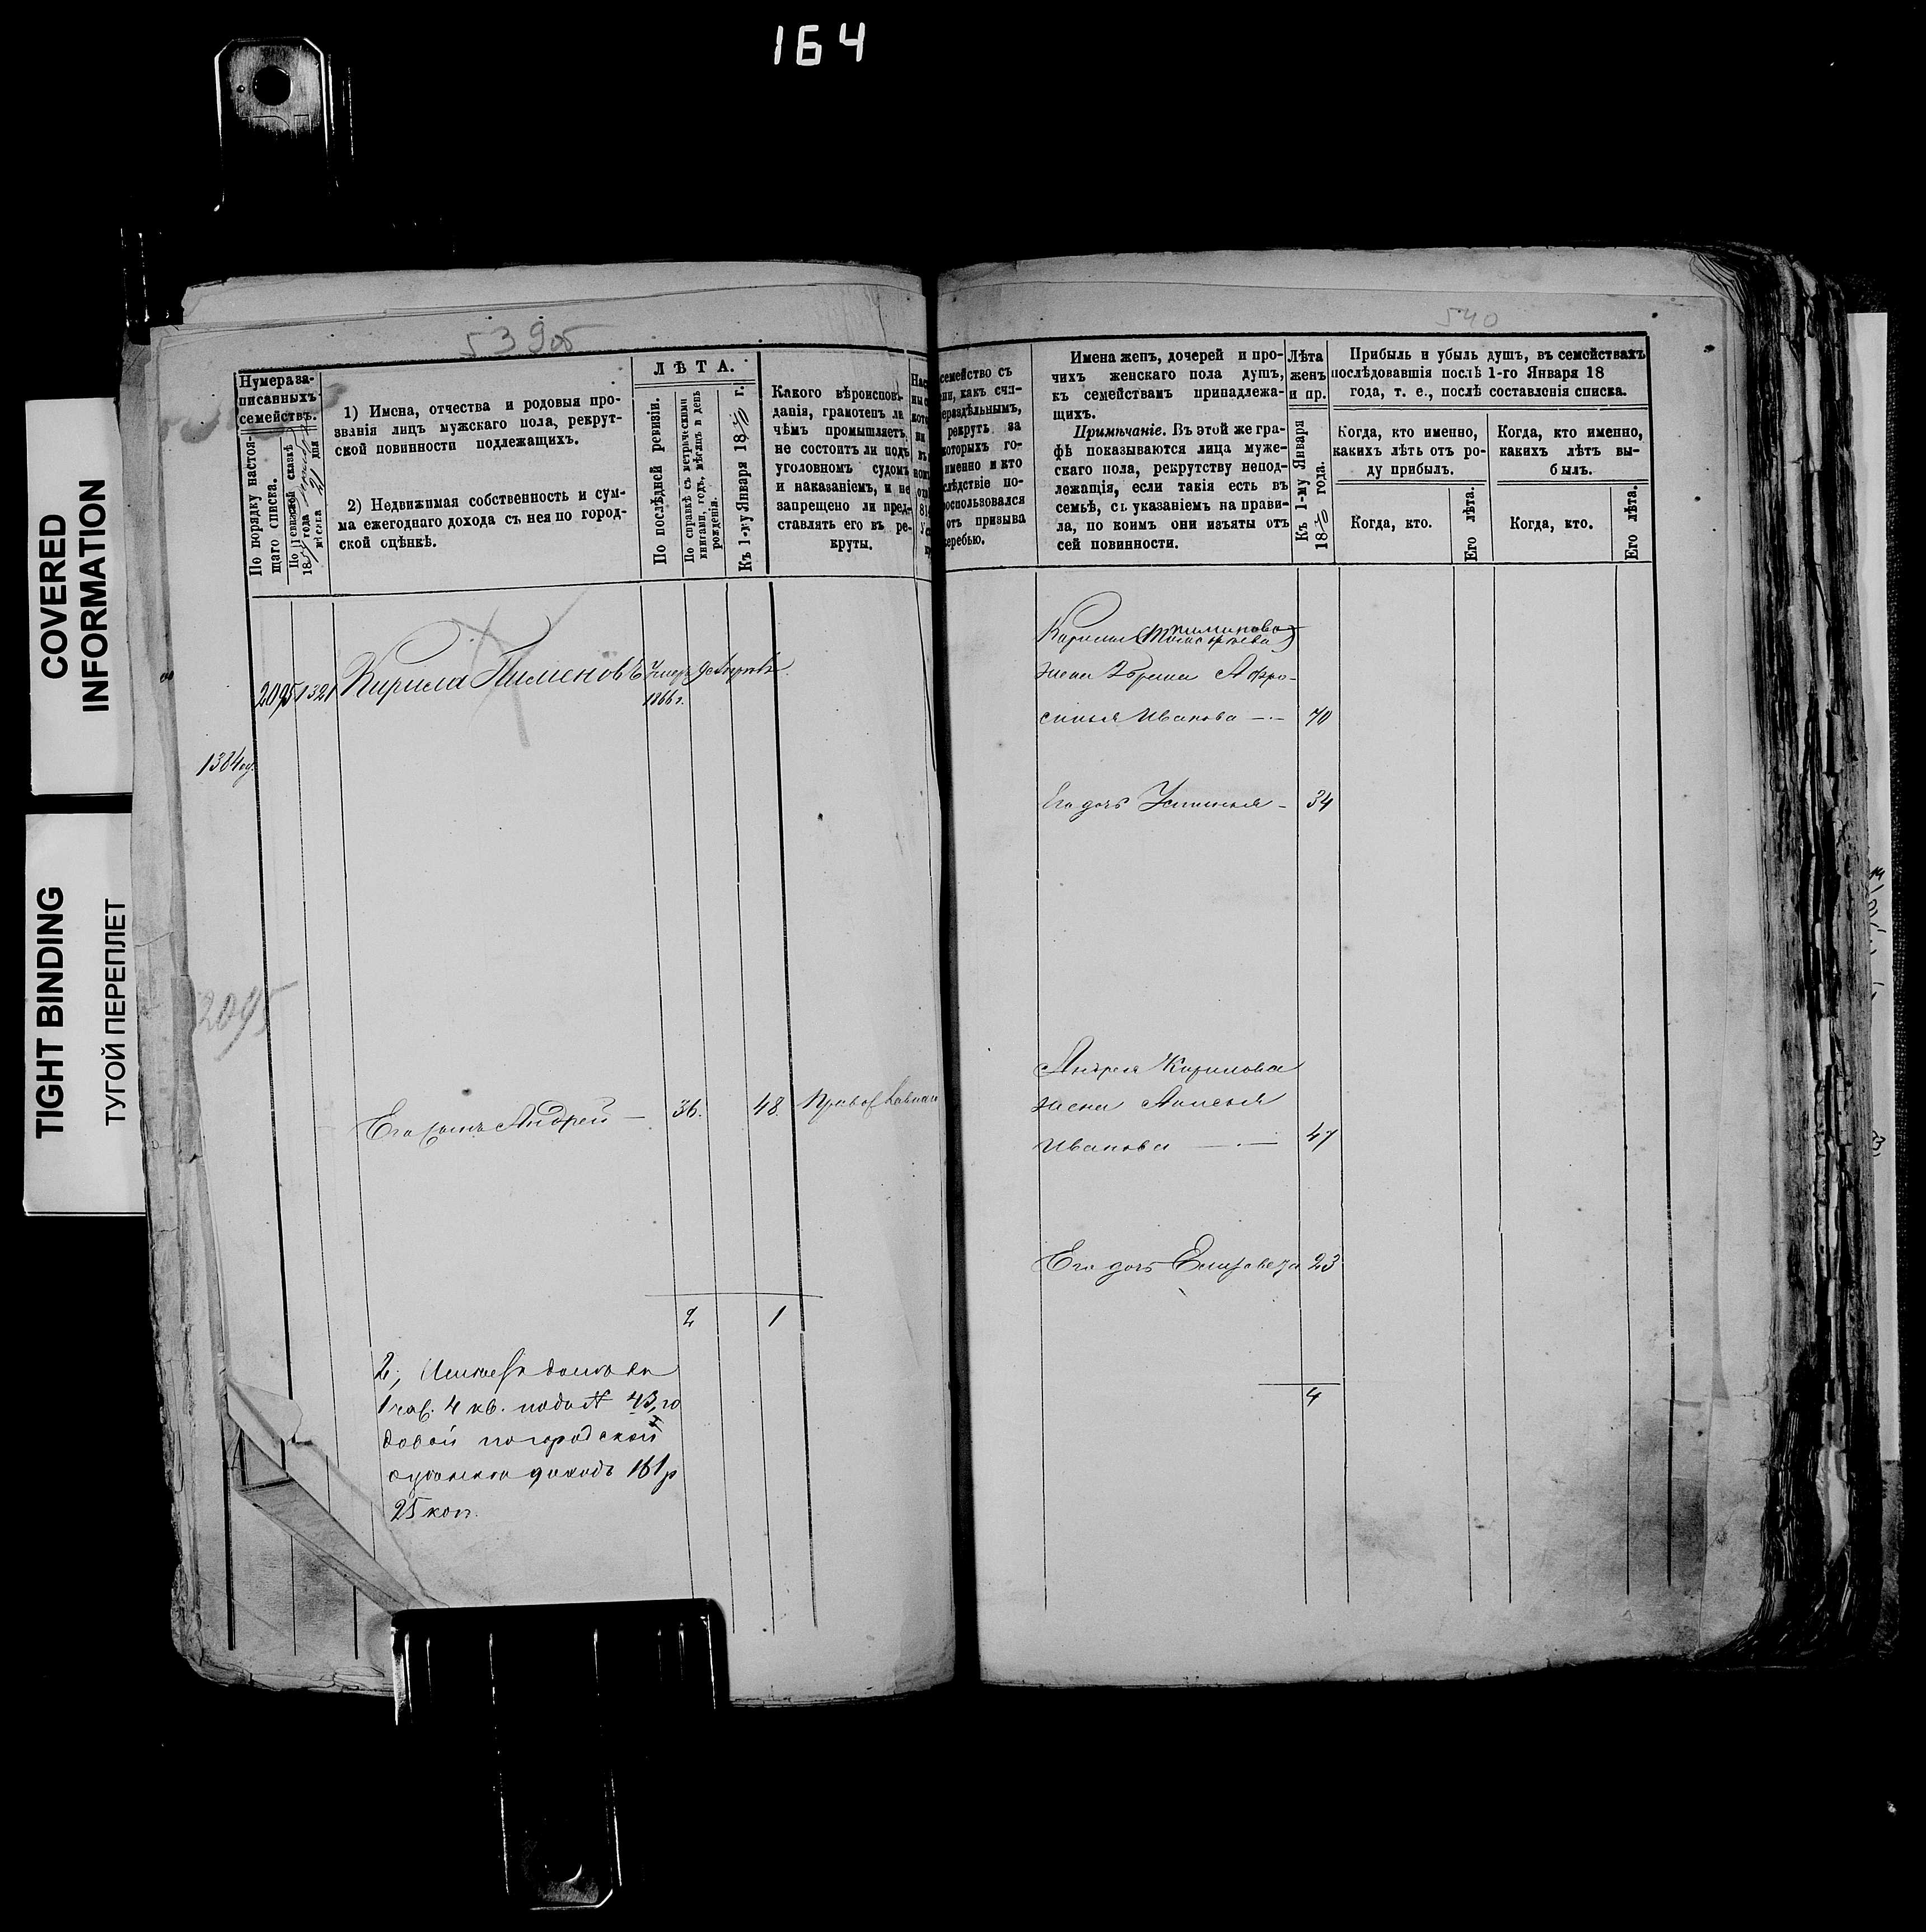 164
COVERED
INFORMATION
TIGHT BINDING
ТУГОЙ ПЕРЕПЛЕТ
539об
Нумера за-
писанныхъ
семействъ.
По порядку настоя-
щаго списка.
По Ревизской сказкѣ
18 года
мѣсяца 21 дня
1) Имена, отчества и родовыя про-
званія лицъ мужскаго пола, рекрут-
ской повинности подлежащихъ.
2) Недвижимая собственность и сум-
ма ежегоднаго дохода съ нея по город-
ской оцѣнкѣ.
ЛѢТА.
По послѣдней ревизіи.
По справкѣ съ метрическими
книгами, годъ, мѣсяцъ и день
рожденія.
Къ 1-му Января 1870 г.
Какого вѣроисповѣ-
данія, грамотенъ ли
чѣмъ промышляетъ,
не состоитъ ли подъ
уголовномъ судомъ
и наказаніемъ, и не
запрещено ли пред-
ставлять его въ ре-
круты.
2095 1321 Кирила Пименовъ Умеръ
1866 г.
1384
2095
Его сынъ Андрей — 36. 48 Православнаго
2 1
2, домъ
1 4 кв. подъ № 43, го
довой по городской
доходъ 161 р
25 коп.
540
семейство съ
как счи-
нераздѣльнымъ,
рекрутъ за
которыхъ го-
именно и кто
слѣдствіе по-
воспользовался
отъ призыва
жеребью.
Имена женъ, дочерей и про-
чихъ женскаго пола душъ,
къ семействамъ принадлежа-
щихъ.
Примѣчаніе. Въ этой же гра-
фѣ показываются лица муже-
скаго пола, рекрутству непод-
лежащія, если такія есть въ
семьѣ, съ указаніемъ на прави-
ла, по коимъ они изъяты отъ
сей повинности.
Лѣта
женъ
и пр.
Къ 1-му Января
1870 года.
Прибыль и убыль душъ, въ семействахъ
послѣдовавшія послѣ 1-го Января 18
года, т. е., послѣ составленія списка.
Когда, кто именно,
какихъ лѣтъ отъ ро-
ду прибылъ.
Когда, кто именно,
какихъ лѣтъ вы-
былъ.
Когда, кто.
Его лѣта.
Когда, кто.
Его лѣта.
Кирила Пименова
жена Афро-
синья Иванова — 70
Его дочь Устинья — 34
Андрея Кирилова
жена
Иванова — 47
Его дочь Елизавета 23
4